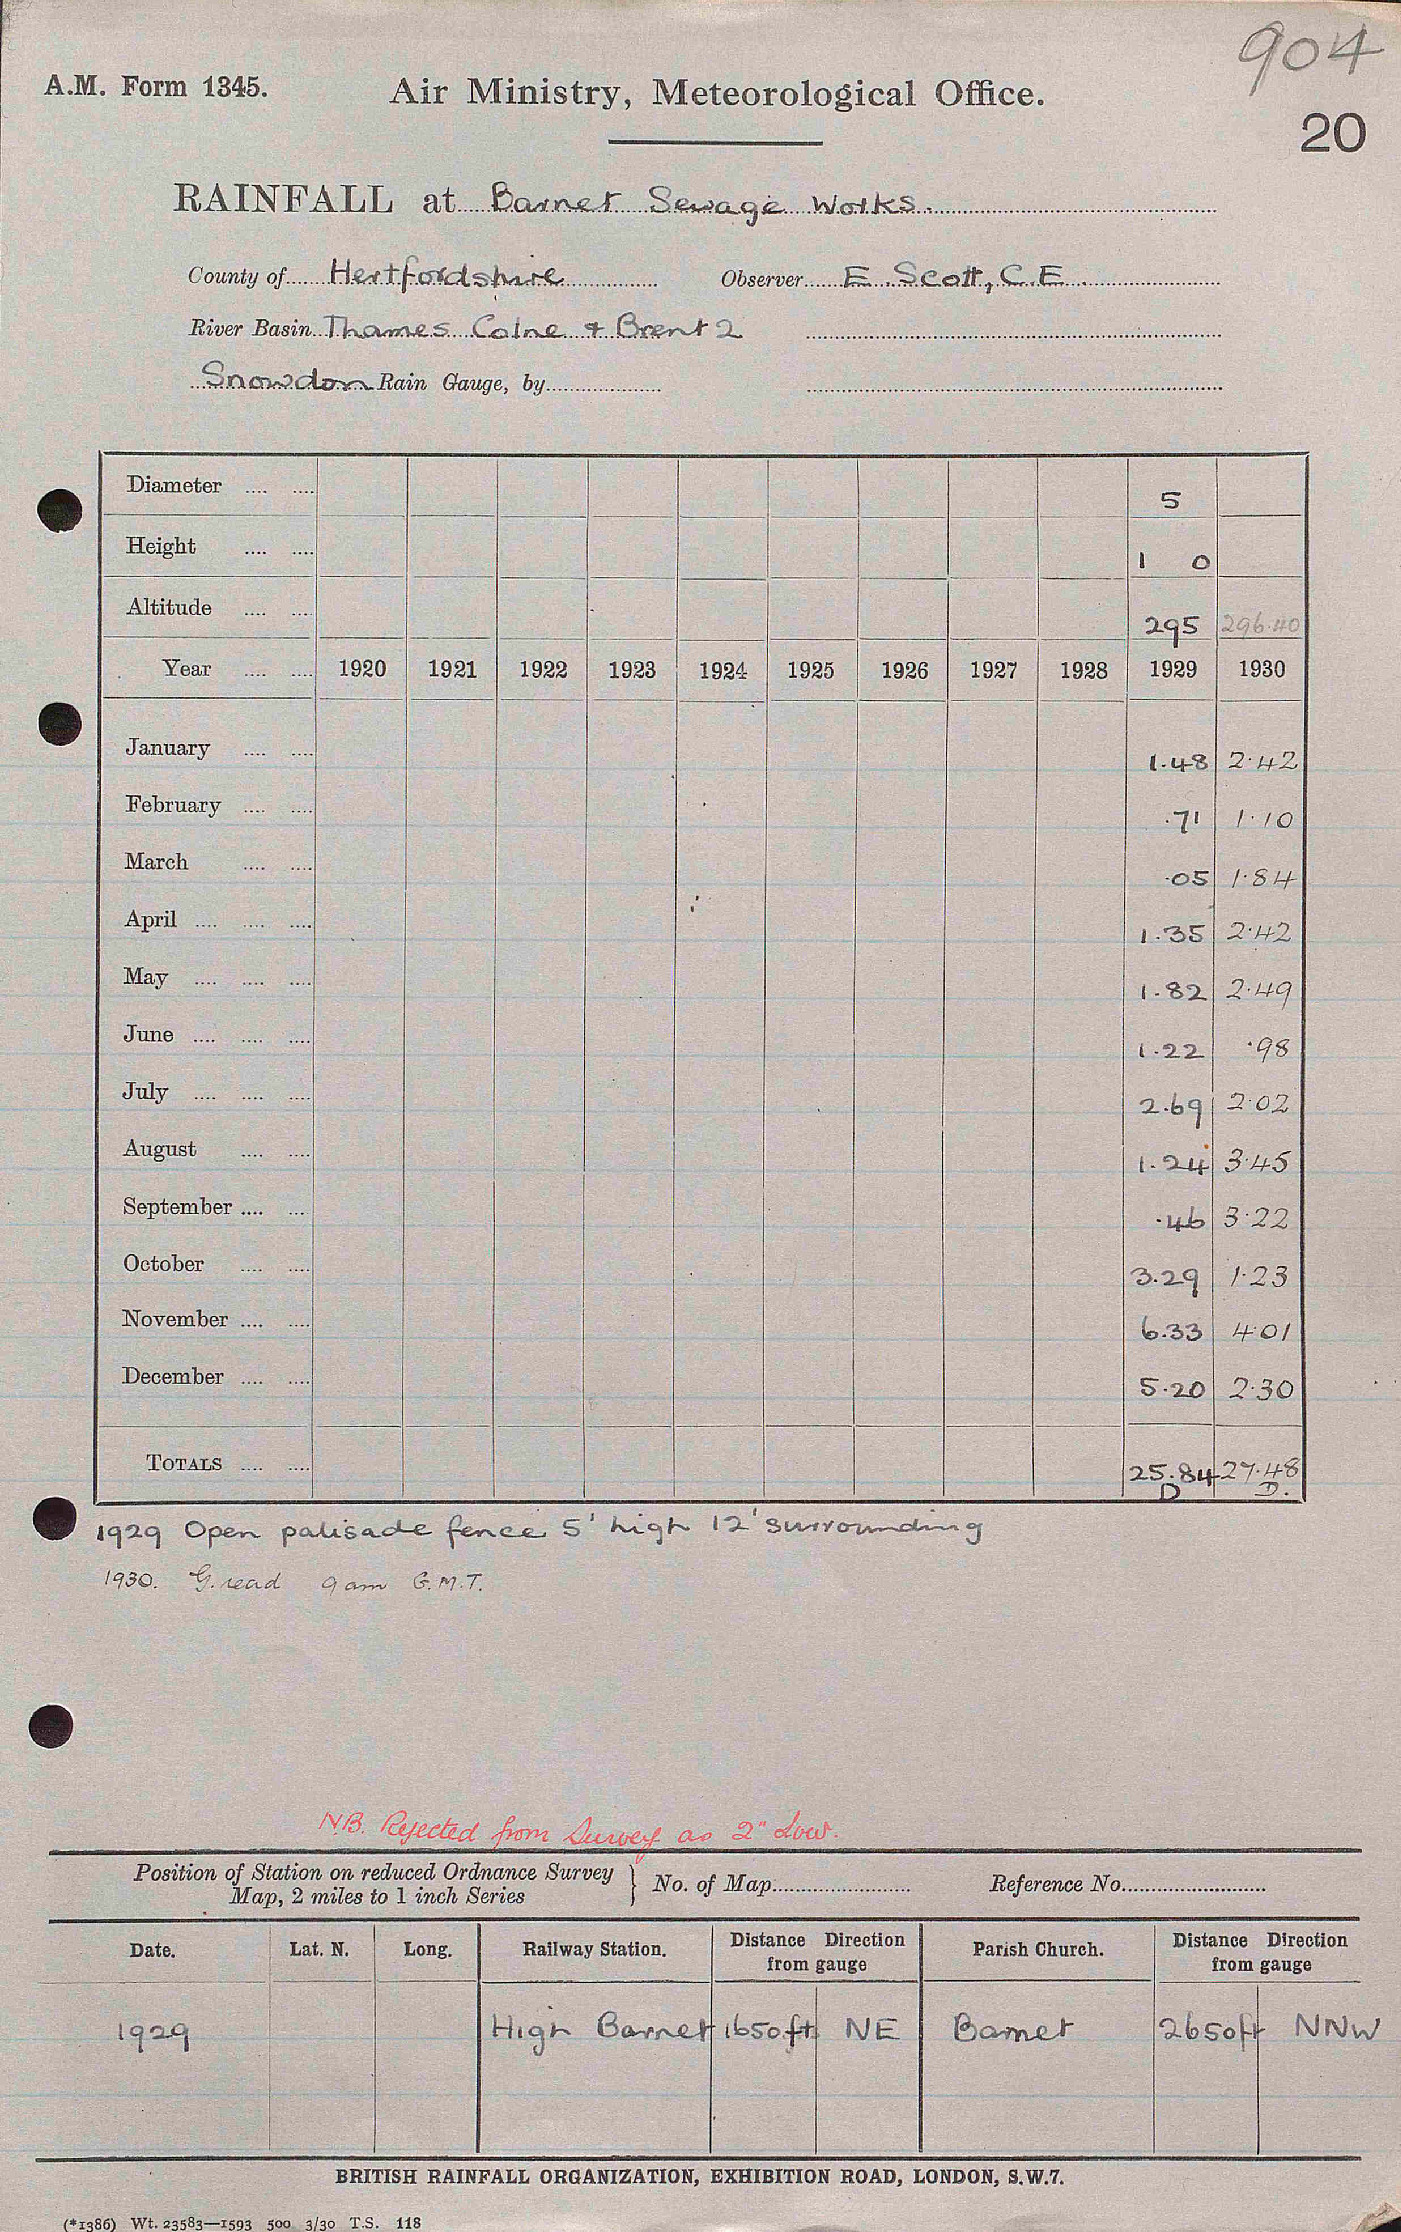 904
A.M. Form 1345.
Air Ministry, Meteorological Office.
20
RAINFALL at Barnet Sewage Works.
County of Hertfordshire Observer E. Scott, C.E.
River Basin Thames Colne + Brent 2
Snowdon Rain Gauge, by
Diameter 5
Height 1 0
Altitude 295 296.40
Year 1920 1921 1922 1923 1924 1925 1926 1927 1928 1929 1930
January 1.48 2.42
February .71 1.10
March .05 1.84
April 1.35 2.42
May 1.82 2.49
June 1.22 .98
July 2.69 2.02
August 1.24 3.45
September .46 3.22
October 3.29 1.23
November 6.33 4.01
December 5.20 2.30
TOTALS 25.84 27.48
D D.
1929 Open palisade fence 5' high 12' surrounding
1930. G. read 9 am G.M.T.
N.B. Rejected from Survey as 2" Low.
Position of Station on reduced Ordnance Survey
Map, 2 miles to 1 inch Series } No. of Map Reference No.
Date. Lat. N. Long. Railway Station. Distance Direction from gauge Parish Church. Distance Direction from gauge
1929 High Barnet 1650 ft NE Barnet 2650 ft NNW
BRITISH RAINFALL ORGANIZATION, EXHIBITION ROAD, LONDON, S.W.7.
(*1386) Wt. 23583—1593 500 3/30 T.S. 118